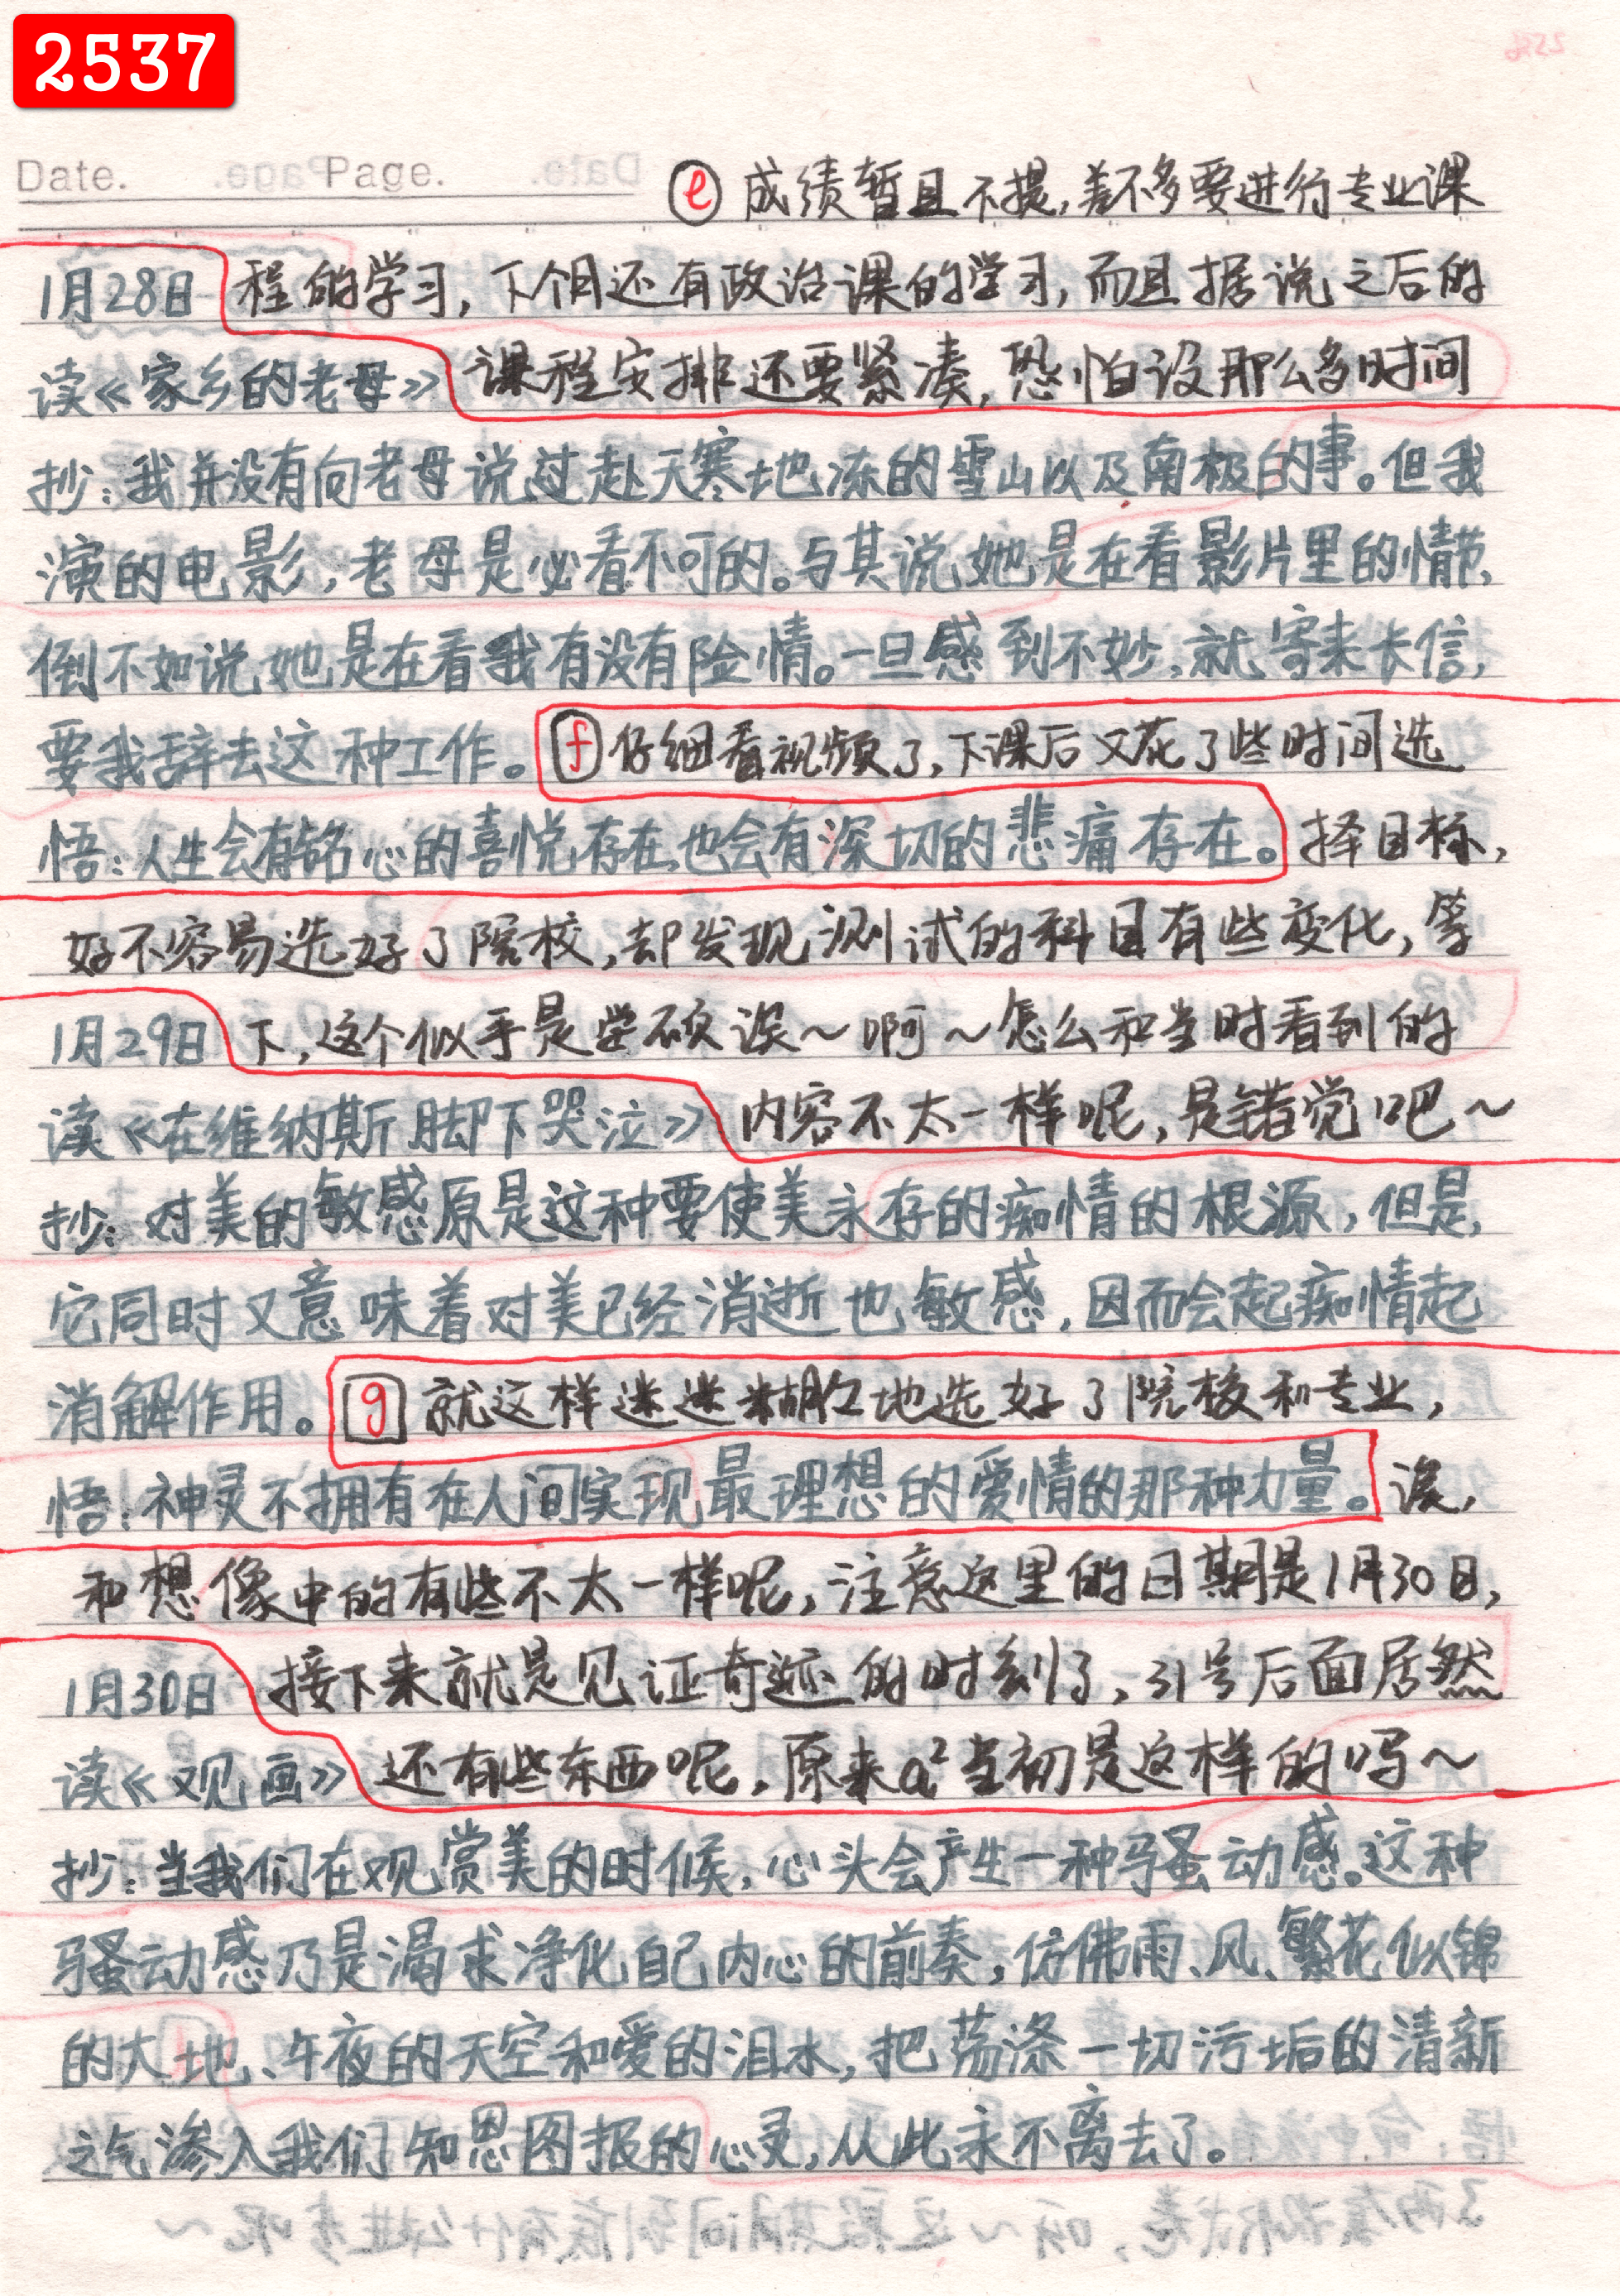 2537
Date. Page.
ⓔ 成绩暂且不提,差不多要进行专业课
1月28日 程的学习,下个月还有政治课的学习,而且据说之后的
读《家乡的老母》 课程安排还要紧凑,恐怕没那么多时间
抄:我并没有向老母说过赴天寒地冻的雪山以及南极的事。但我
演的电影,老母是必看不可的。与其说她是在看影片里的情节,
倒不如说她是在看我有没有险情。一旦感到不妙,就寄来长信,
要我辞去这种工作。 f 仔细看视频了,下课后又花了些时间选
悟:人生会有铭心的喜悦存在,也会有深切的悲痛存在。 择目标,
好不容易选好了院校,却发现测试的科目有些变化,等
1月29日 下,这个似乎是学硕诶~啊~怎么和当时看到的
读《在维纳斯脚下哭泣》 内容不太一样呢,是错觉吧~
抄:对美的敏感原是这种要使美永存的痴情的根源,但是,
它同时又意味着对美已经消逝也敏感,因而会起痴情起
消解作用。 g 就这样迷迷糊糊地选好了院校和专业,
悟:神灵不拥有在人间实现最理想的爱情的那种力量。 诶,
和想像中的有些不太一样呢,注意这里的日期是1月30日,
1月30日 接下来就是见证奇迹的时刻了,引号后面居然
读《观画》 还有些东西呢,原来a²当初是这样的吗~
抄:当我们在观赏美的时候,心头会产生一种骚动感。这种
骚动感乃是渴求净化自己内心的前奏,仿佛雨、风、繁花似锦
的大地、午夜的天空和爱的泪水,把荡涤一切污垢的清新
之气渗入我们知恩图报的心灵,从此永不离去了。